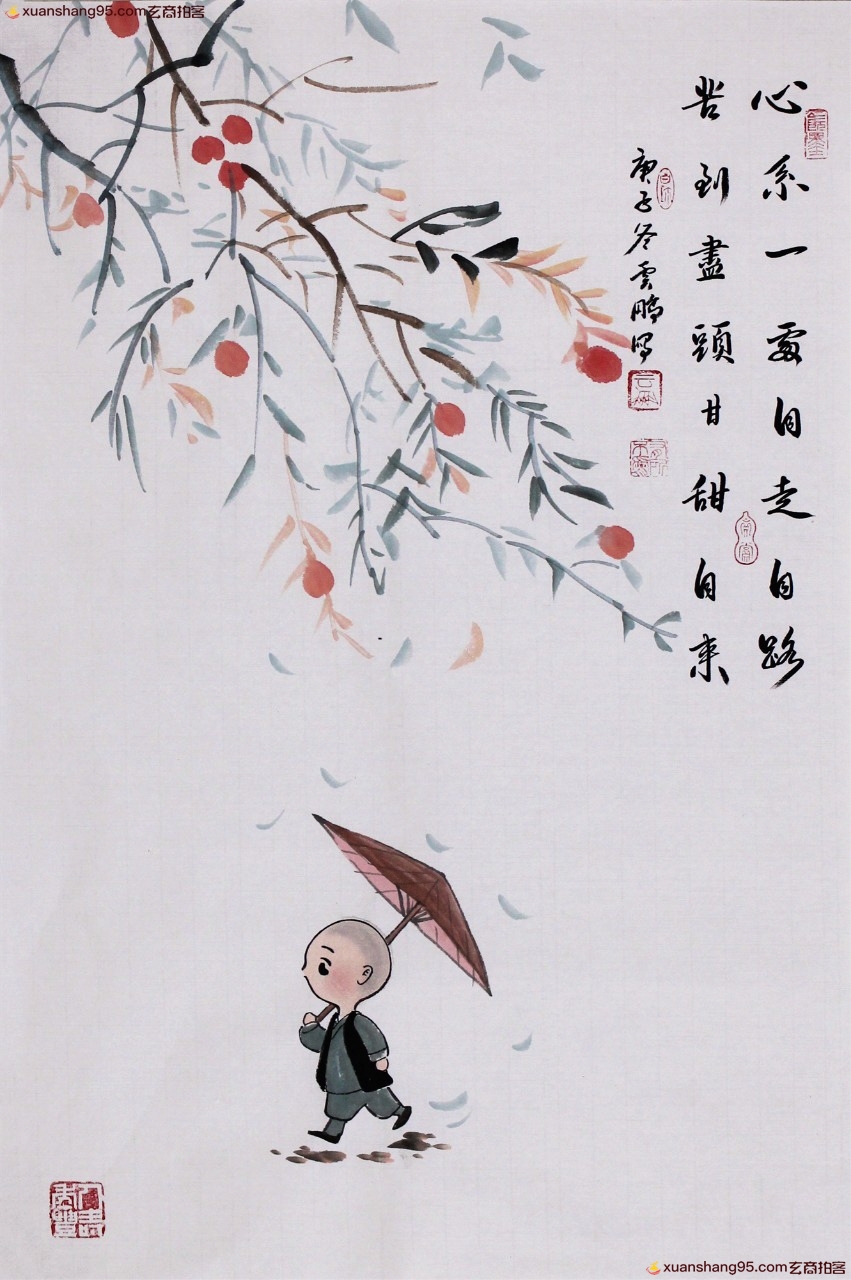 xuanshang95.com玄商拍客
心系一處自走自路
苦到盡頭甘甜自来
庚子冬雲鵬寫
xuanshang95.com玄商拍客